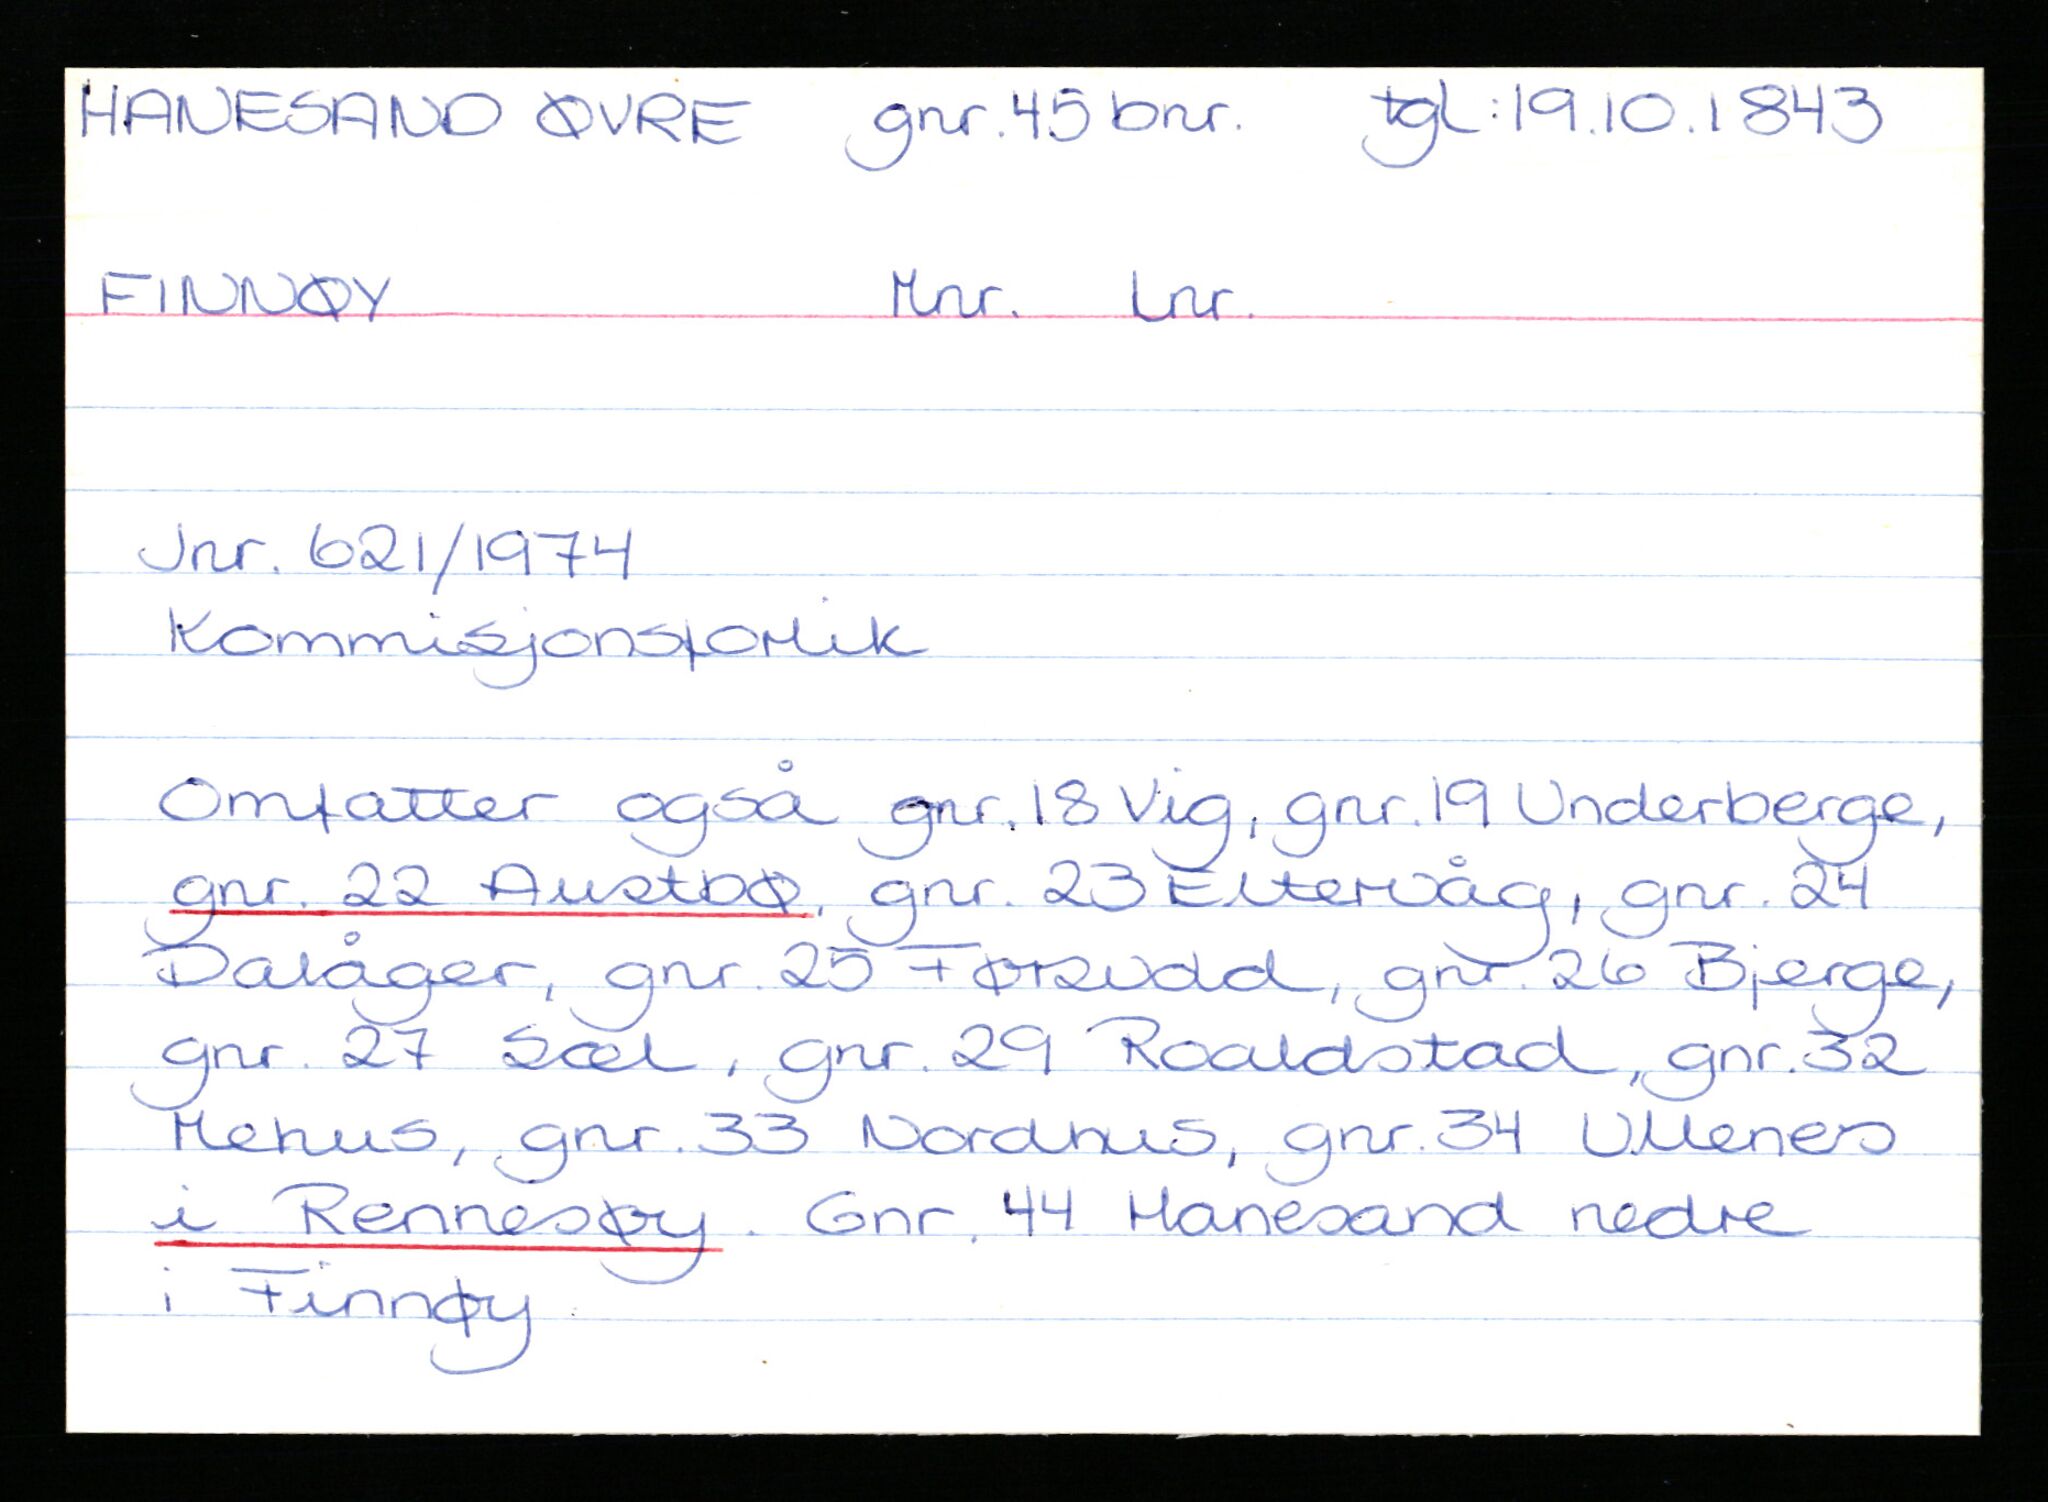 HANESAND ØVRE gnr. 45 bnr. tgl: 19.10.1843
FINNØY Mnr. Lnr.
Jnr. 621/1974
Kommisjonsforlik
Omfatter også gnr. 18 Vig, gnr. 19 Underberge,
gnr. 22 Austbø, gnr. 23 Eltervåg, gnr. 24
Dalåger, gnr. 25 Førsvdd, gnr. 26 Bjerge,
gnr. 27 Sæl, gnr. 29 Roaldstad, gnr. 32
Mehus, gnr. 33 Nordhus, gnr. 34 Ullenes
i Rennesøy. Gnr. 44 Hanesand nedre
i Finnøy.